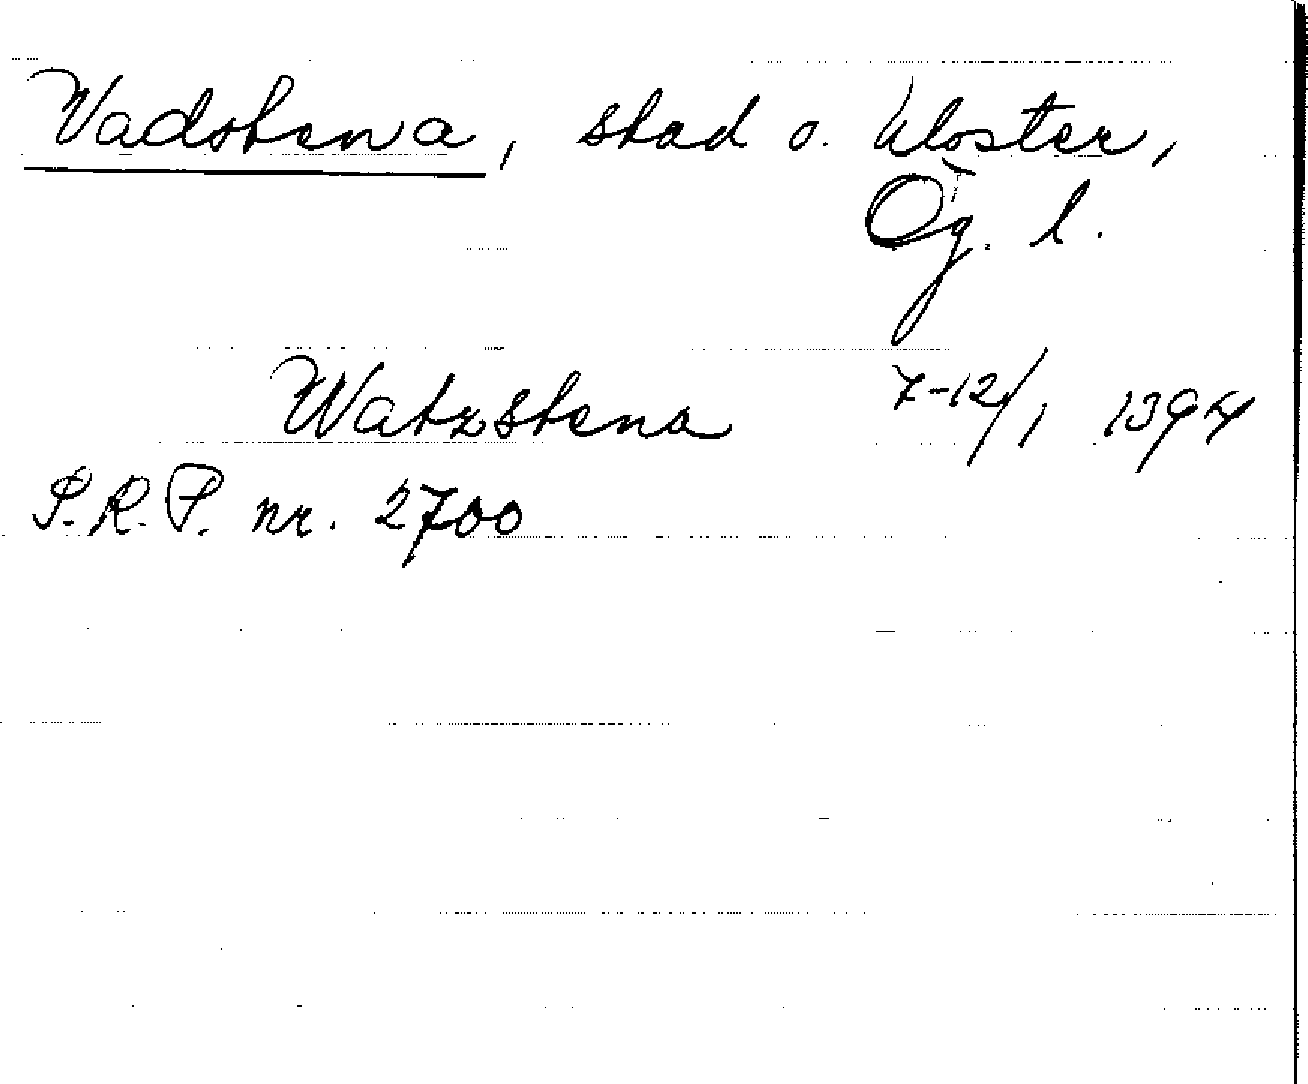 Vadstena, stad o. kloster,
Ög. l.
Watzstena 7-12/1 1394
S.R.P. nr. 2700